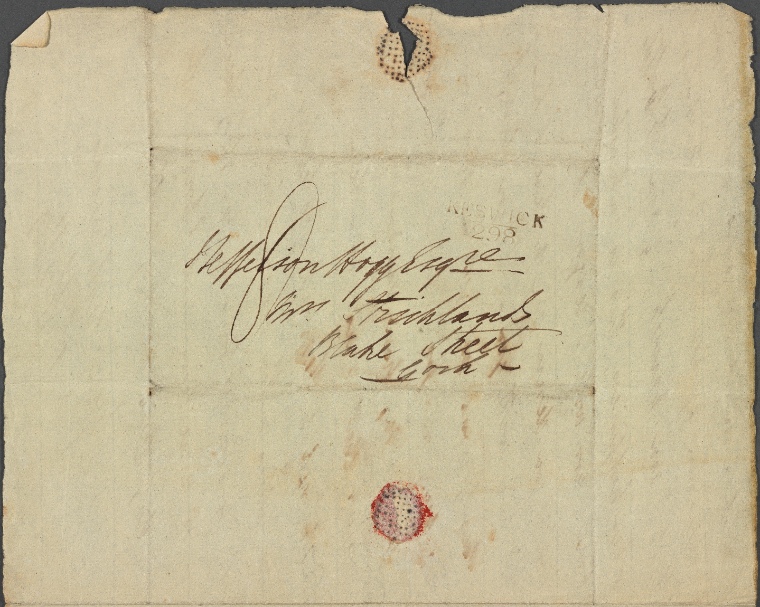 KESWICK
298
Jefferson Hogg Esqre
Mrs Stricklands
Blake Street
York
8